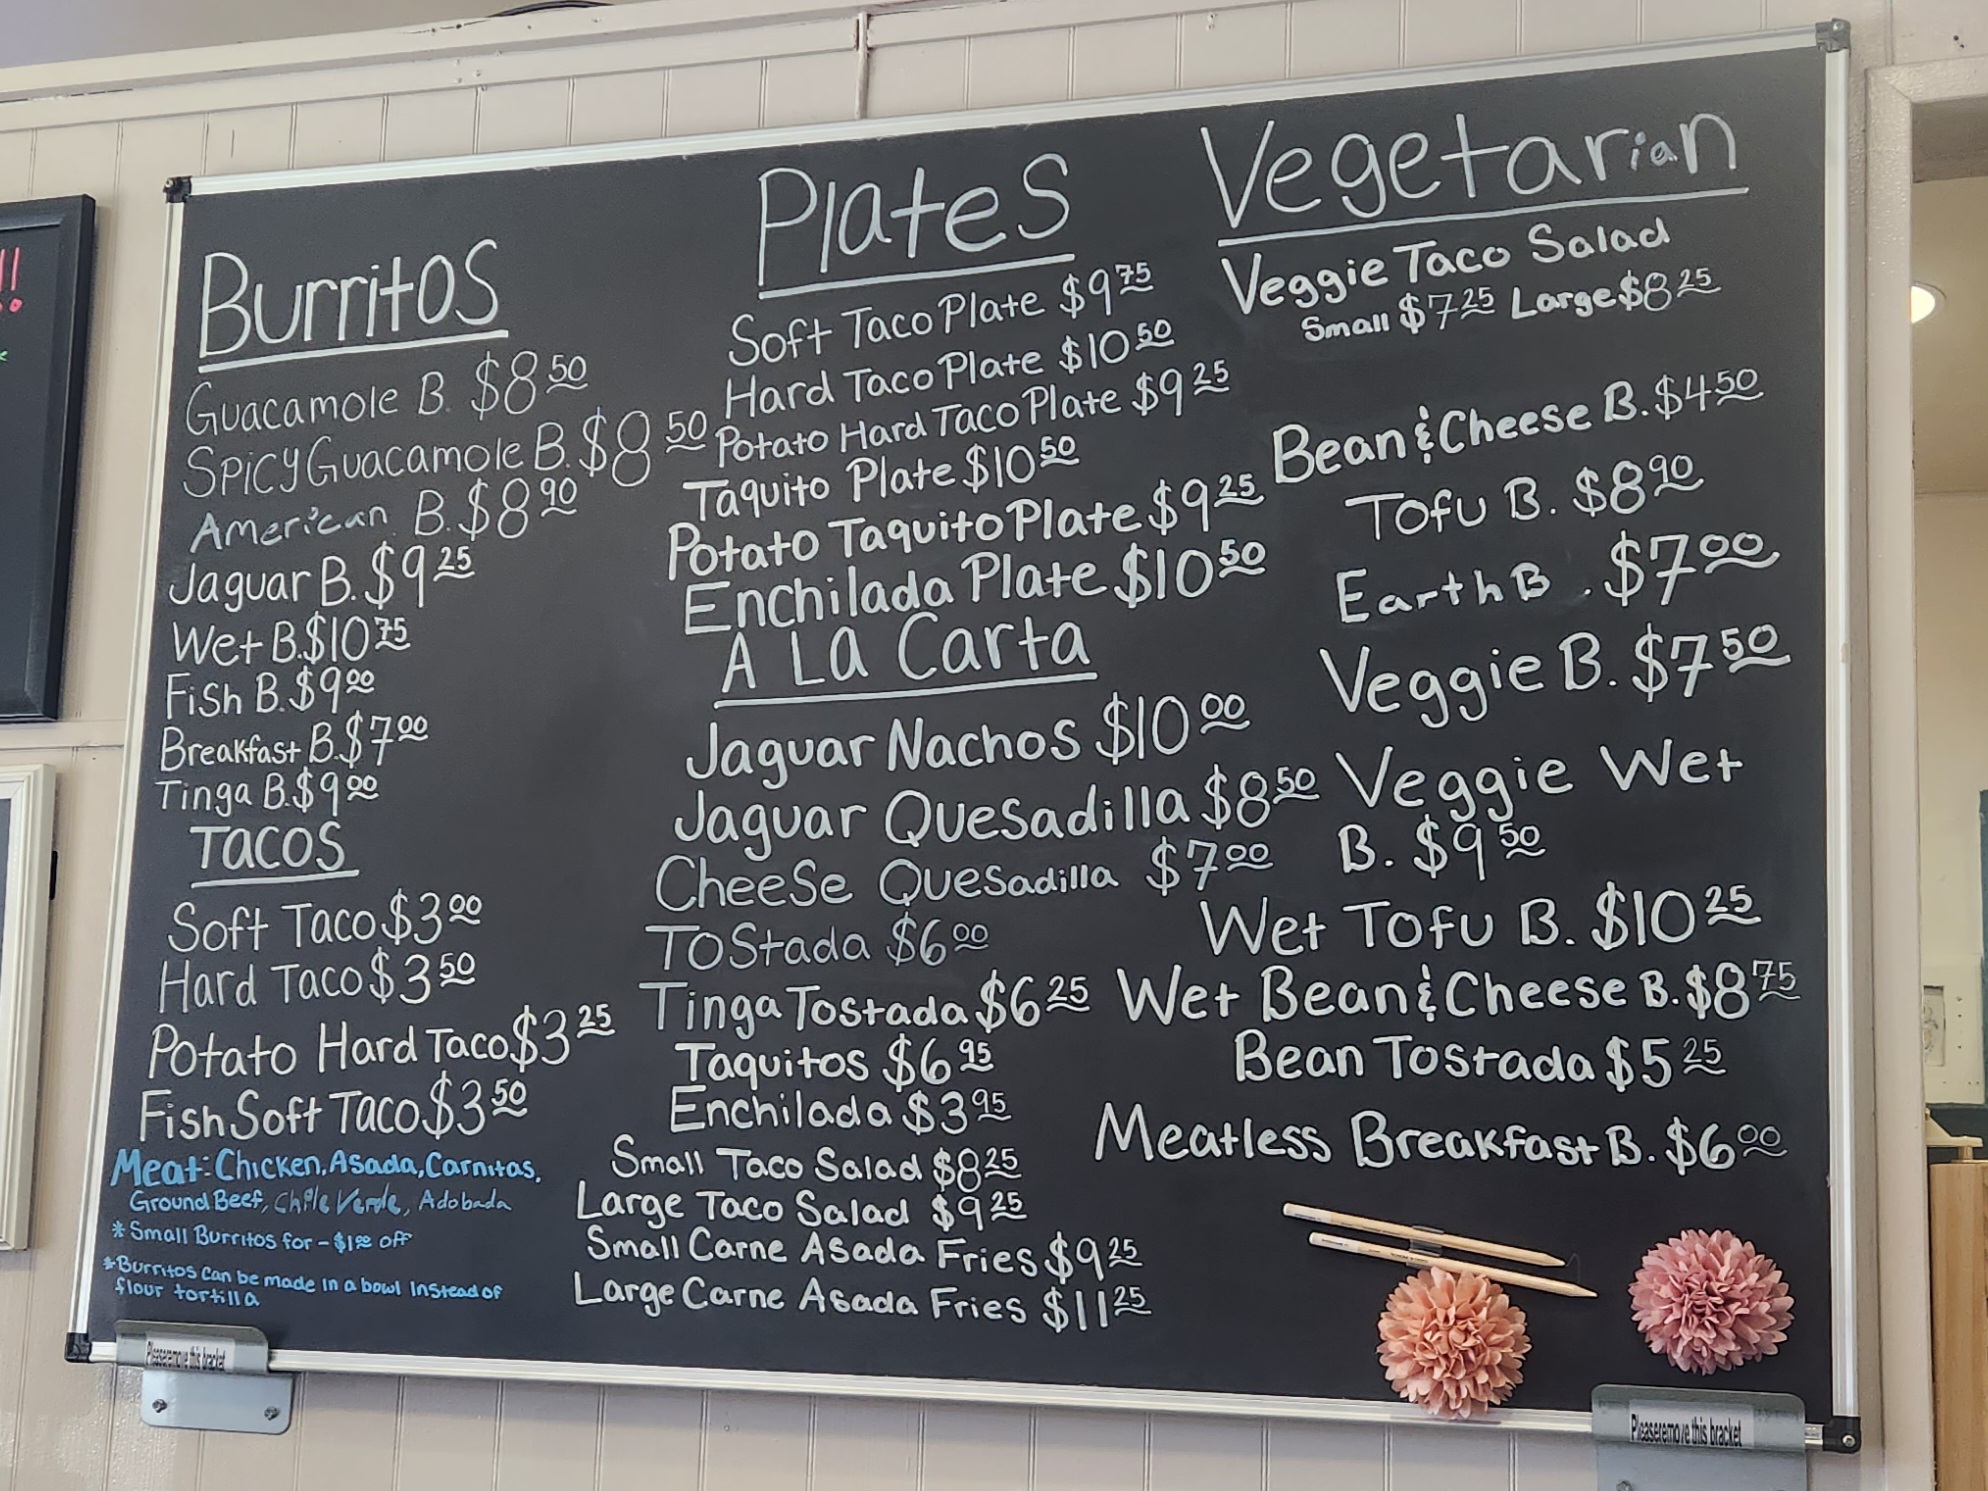 Burritos
Guacamole B. $8 50
Spicy Guacamole B. $8 50
American B. $8 90
Jaguar B. $9 25
Wet B. $10 75
Fish B. $9 00
Breakfast B. $7 00
Tinga B. $9 00
Tacos
Soft Taco $3 00
Hard Taco $3 50
Potato Hard Taco $3 25
Fish Soft Taco $3 50
Meat: Chicken, Asada, Carnitas,
Ground Beef, Chile Verde, Adobada
* Small Burritos for - $1 00 off
* Burritos can be made in a bowl instead of
flour tortilla
Plates
Soft Taco Plate $9 75
Hard Taco Plate $10 50
Potato Hard Taco Plate $9 25
Taquito Plate $10 50
Potato Taquito Plate $9 25
Enchilada Plate $10 50
A La Carta
Jaguar Nachos $10 00
Jaguar Quesadilla $8 50
Cheese Quesadilla $7 00
Tostada $6 00
Tinga Tostada $6 25
Taquitos $6 95
Enchilada $3 95
Small Taco Salad $8 25
Large Taco Salad $9 25
Small Carne Asada Fries $9 25
Large Carne Asada Fries $11 25
Vegetarian
Veggie Taco Salad
Small $7 25 Large $8 25
Bean & Cheese B. $4 50
Tofu B. $8 90
Earth B. $7 00
Veggie B. $7 50
Veggie Wet
B. $9 50
Wet Tofu B. $10 25
Wet Bean & Cheese B. $8 75
Bean Tostada $5 25
Meatless Breakfast B. $6 00
Please remove this bracket
Please remove this bracket
!!